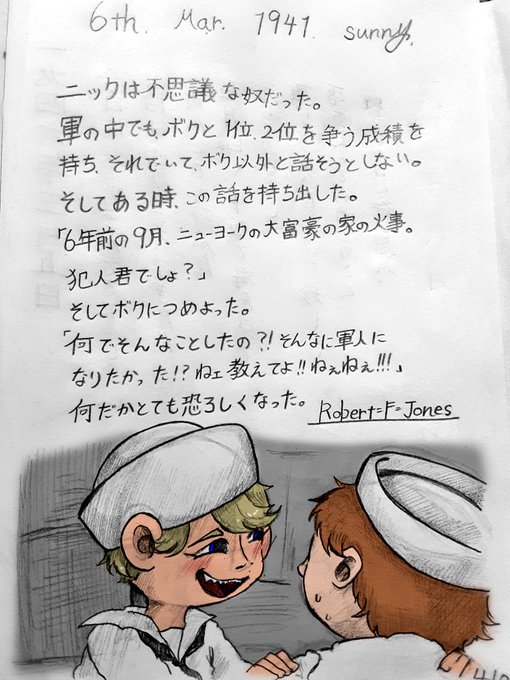 6th. Mar. 1941. sunny.
ニックは不思議な奴だった。
軍の中でも、ボクと1位、2位を争う成績を
持ち、それでいて、ボク以外と話そうとしない。
そしてある時、この話を持ち出した。
「6年前の9月、ニューヨークの大富豪の家の火事。
犯人君でしょ？」
そしてボクにつめよった。
「何でそんなことしたの?!そんなに軍人に
なりたかった!?ねェ教えてよ!!ねぇねぇ!!!」
何だかとても恐ろしくなった。
Robert=F=Jones